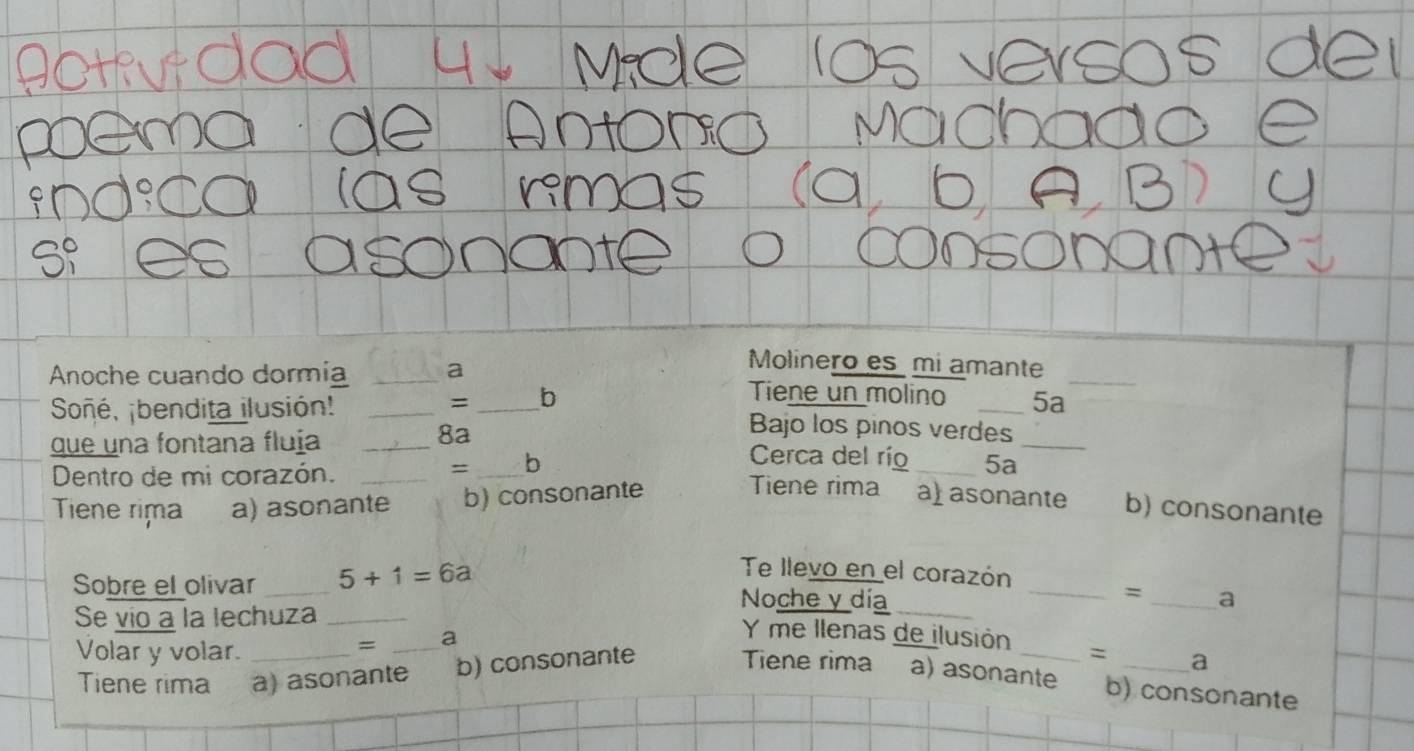 Actividad 4. Mide los versos del
poema de Antonio Machado e
indica las rimas (a, b, A, B) y
si es asonante o consonante:
Anoche cuando dormía ____ a
Soñé, ¡bendita ilusión! ____ = ____ b
que una fontana fluía ____ 8a
Dentro de mi corazón. ____ = ____ b
Tiene rima a) asonante b) consonante
Molinero es mi amante ____
Tiene un molino ____ 5a
Bajo los pinos verdes ____
Cerca del río ____ 5a
Tiene rima a) asonante b) consonante
Sobre el olivar ____ 5+1=6a
Se vio a la lechuza ____
Volar y volar. ____ = ____ a
Tiene rima a) asonante b) consonante
Te llevo en el corazón ____ = ____ a
Noche y día ____
Y me llenas de ilusión ____ = ____ a
Tiene rima a) asonante b) consonante